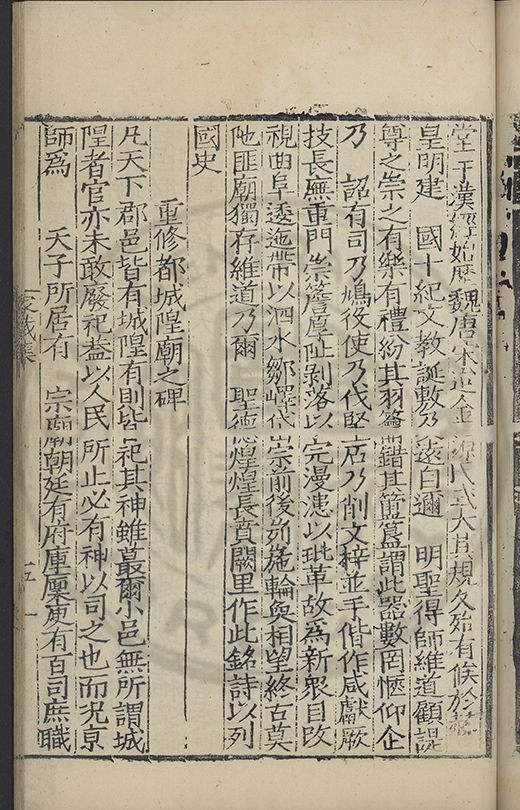 堂于漢經始歷魏唐宋世金源代式大其規久殆有俟於
皇明建 國十紀文教誕敷乃遠自邇 明聖得師維道顧諟
尊之崇之有樂有禮紛其羽籥錯其簠簋謂此器數罔愜仰企
乃 詔有司乃鳩役使乃伐堅石乃削文梓並手偕作咸獻厥
技長廡重門崇簷厚阯剝落以完漫漶以玼革故為新眾目改
視曲阜逶迤帶以泗水鄒嶧岱宗前後峛崺輪奐相望終古莫
阤匪廟獨存維道乃爾 聖德煌煌長賁闕里作此銘詩以列
國史
重修都城隍廟之碑
凡天下郡邑皆有城隍有則皆祀其神雖蕞爾小邑無所謂城
隍者官亦未敢廢祀益以人民所止必有神以司之也而況京
師為 天子所居有 宗廟朝廷有府庫廩庾有百司庶職